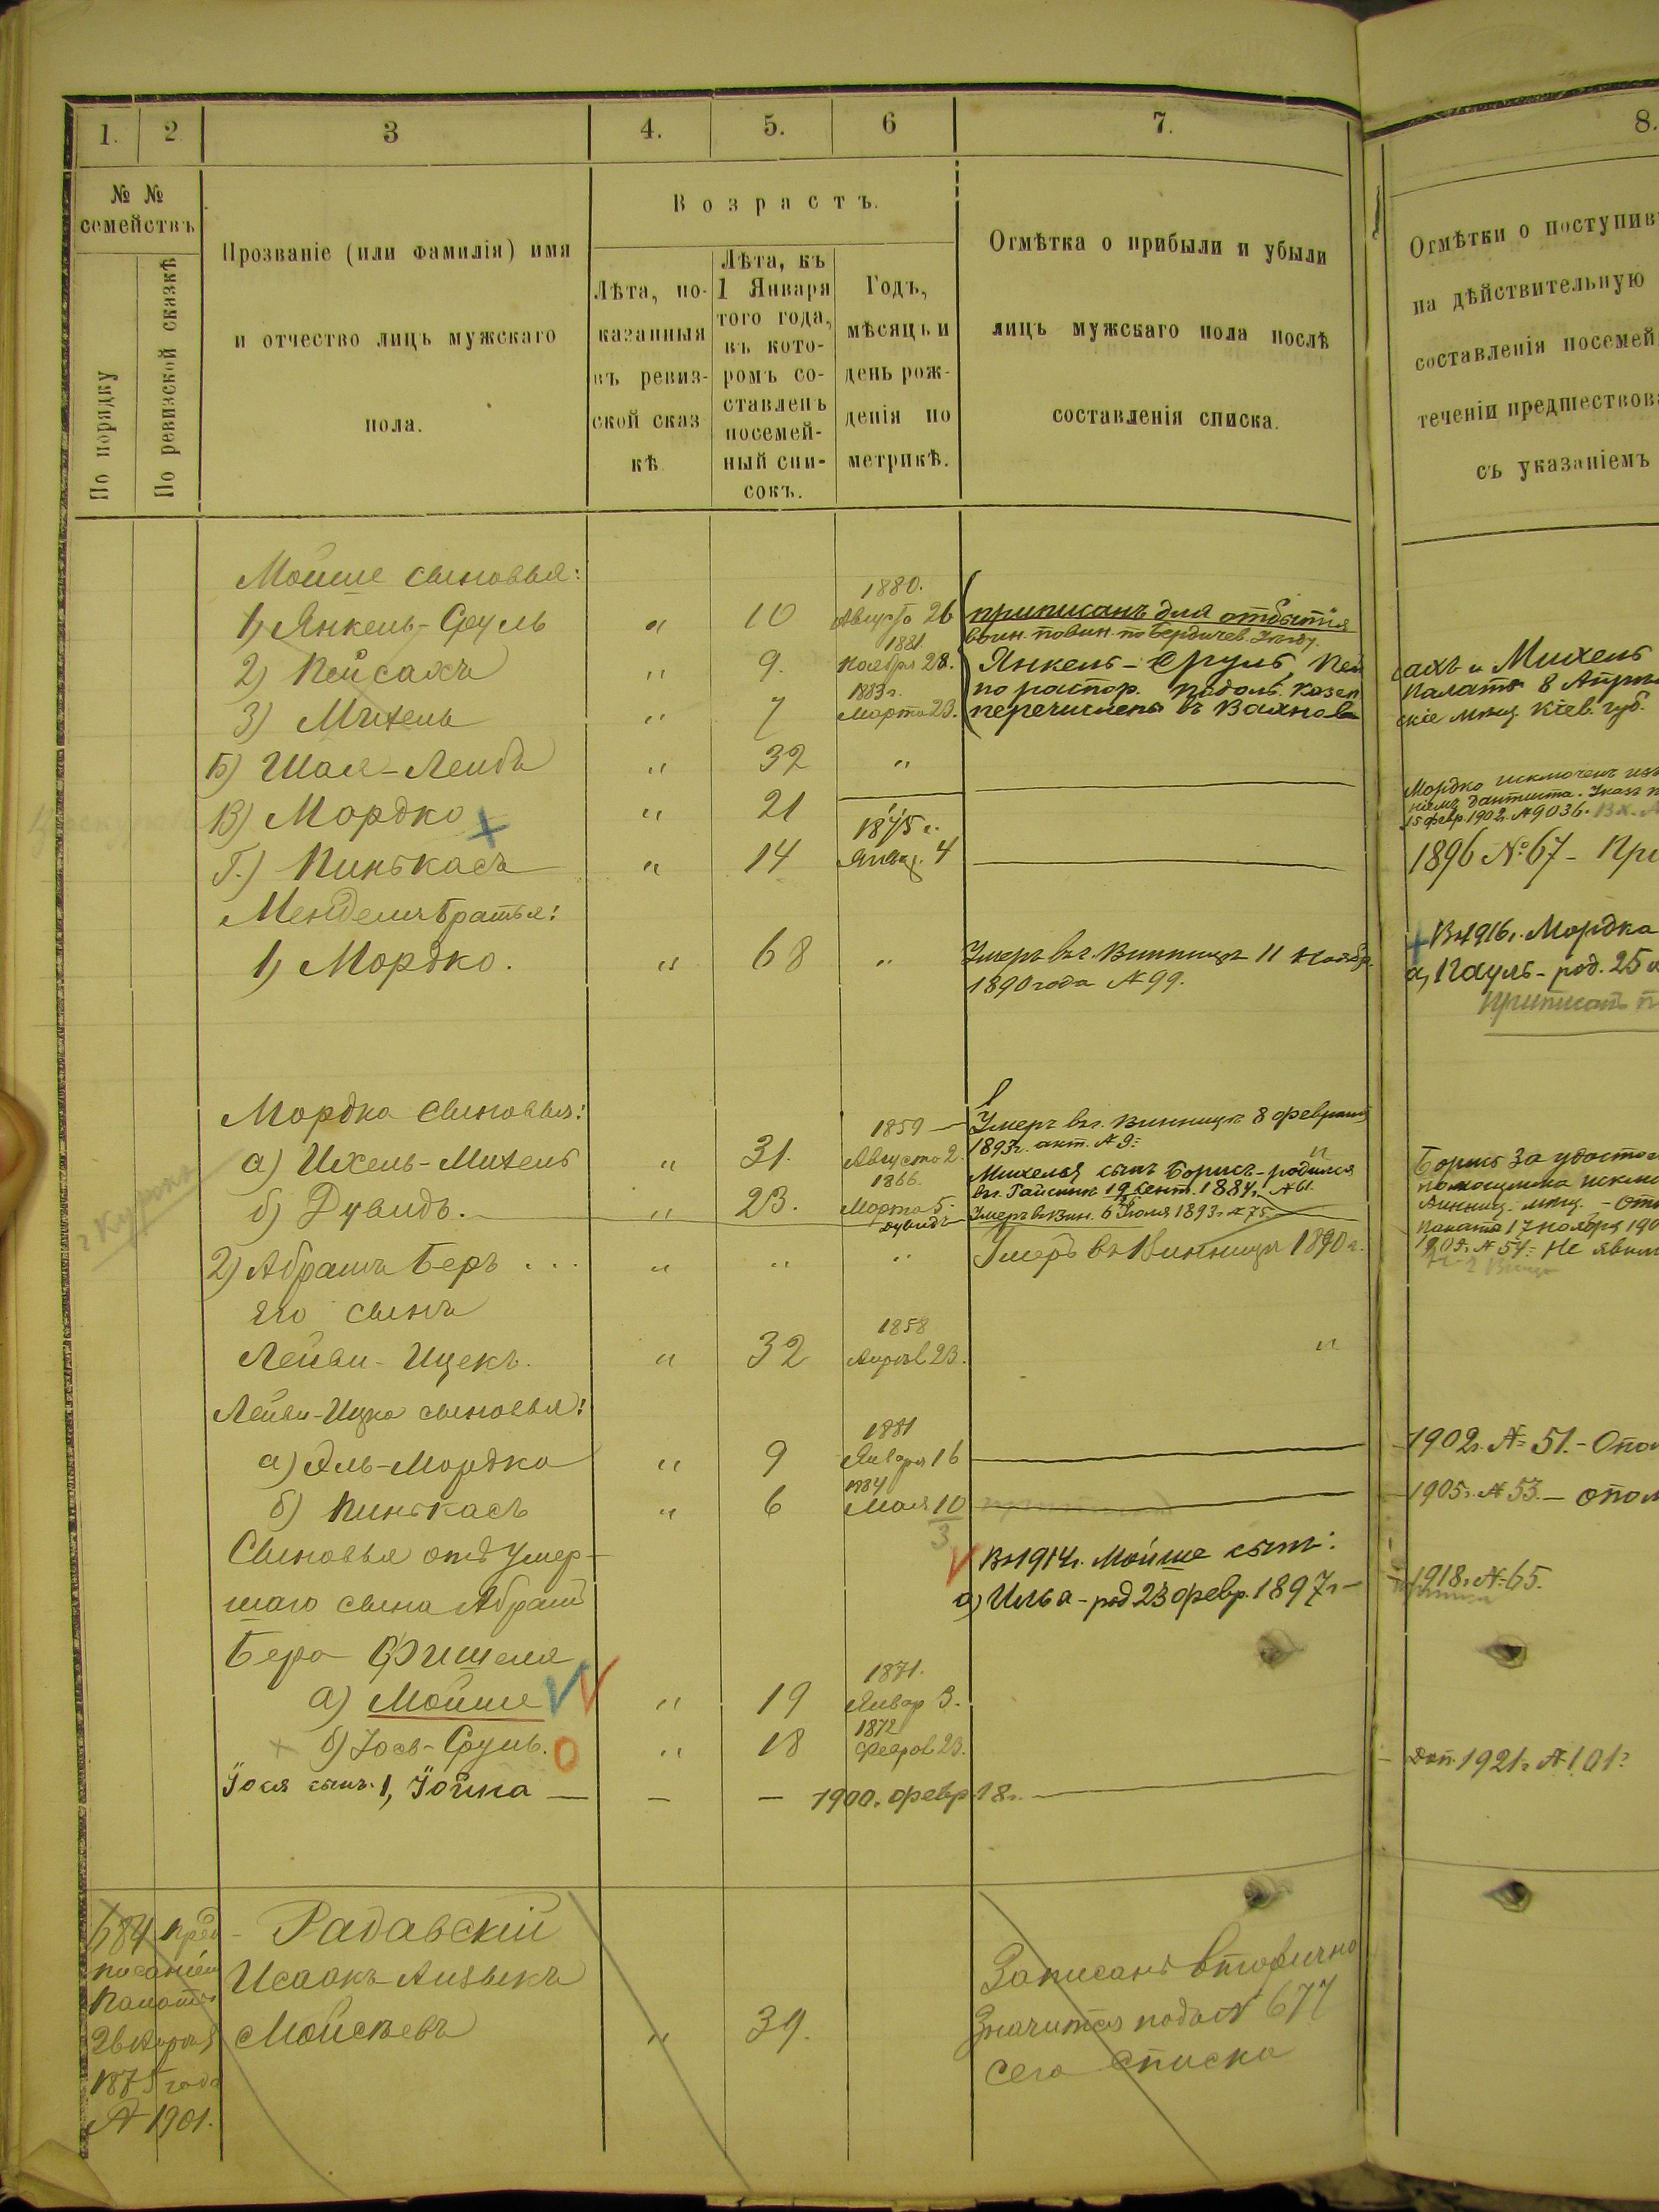 1. 2 3 4. 5. 6 7. 8.
№ №
семействъ
По порядку
По ревизской сказкѣ
Прозваніе (или фамилія) имя
и отчество лицъ мужскаго
пола.
Возрастъ.
Лѣта, по-
казанныя
въ ревиз-
ской сказ
кѣ
Лѣта, къ
1 Января
того года,
въ кото-
ромъ со-
ставленъ
посемей-
ный спи-
сокъ.
Годъ,
мѣсяцъ и
день рож-
денія по
метрикѣ.
Отмѣтка о прибыли и убыли
лицъ мужскаго пола послѣ
составленія списка.
Отмѣтки о поступив
на дѣйствительную
составленія посемей
теченіи предшествова
съ указаніемъ
Мойше сыновья:
1) Янкель-Сруль " 10 1880. Августа 26
приписанъ для отбытія
воин. повин. по Бердичев. уѣзду
2) Пейсахъ " 9. 1881 Ноября 28.
Янкель-Сруль, Пей сахъ и Михель
по распор. Подоль. Казен Палаты 8 Апрѣ
3) Михель " 7 1883 г. Марта 23.
перечислены въ Вахнов скіе мѣщ. Кіев. губ.
Б) Шая-Лейбъ " 32 "
В) Мордко " 21
Мордко исключенъ изъ
дантиста. Указъ
15 февр. 1902 г. № 9036.
Г.) Пинькасъ " 14 1875 г. Январ. 4
1896 № 67 - При
Менделя братья:
1) Мордко. " 68 "
Умеръ въ г. Винницѣ 11 Ноябр.
1890 года № 99.
Въ 1916 г. Мордка
а) Пауль - род. 25
приписать
Мордка сыновья:
а) Ихель-Михель " 31. 1859 Августа 2.
Умеръ въ г. Винницѣ 8 февраля
1893 г. акт. № 9
Михеля сынъ Борисъ - родился
въ г. Гайсинѣ 19 Сент. 1884 г. № 61.
б) Дувидъ. " 23. 1866. Марта 5.
Дувидъ Умеръ въ Вин. 6 Іюля 1893 г. № 75
г Курск
Борисъ за
Винниц. мѣщ.
Палата 17 ноября 190
№ 54 = Не явил
2) Абрамъ Беръ . . . " " "
Умеръ въ Винницѣ 1890 г.
его сынъ
Лейви-Ицекъ. " 32 1858 Апрѣл 23. "
Лейви-Ицка сыновья:
а) Эль-Мордко " 9 1881 Января 16
1902 г. № 51. - Опол
б) Пинькасъ " 6 1884 Мая 10
3
1905 г. № 53. - опол
Сыновья отъ умер-
шаго сына Абрам
Бера Фишеля
Въ 1914 г. Мойше сынъ:
а) Илья - род 23 февр. 1897 г -
1918 г. № 65.
а) Мойше " 19 1871. Январ 3.
б) Іось-Сруль. " 18 1872 Феврал 23.
Іося сынъ. 1, Іойна — — — 1900. февр. 18 г.
Доп. 1921 г. № 101
684 Пред
писаніем
Палаты
26
1875 года
№ 1901.
Радавскій
Исаакъ-Айзыкъ
Мойсѣевъ " 39.
Записанъ вторично
Значится подъ № 677
сего списка